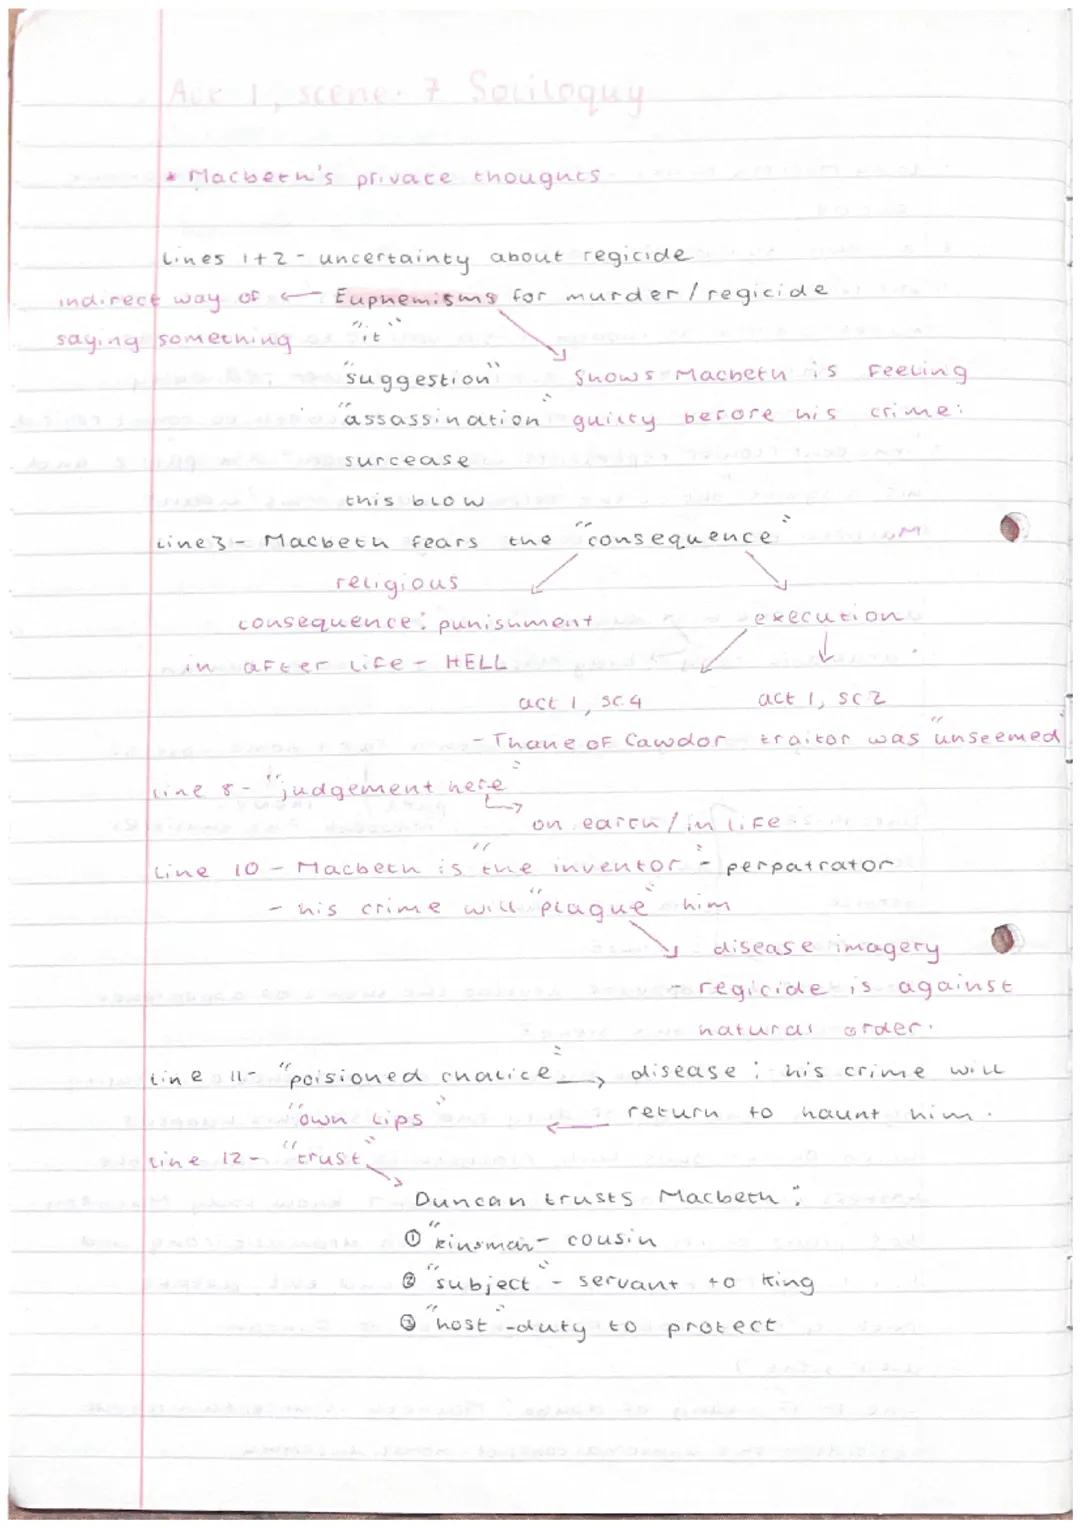 Act 1, scene. 7 Soliloquy
* Macbeth's private thoughts
Lines 1+2 - uncertainty about regicide
indirect way of ← Euphemisms for murder/regicide
saying something "it"
"suggestion" shows Macbeth is feeling
"assassination" guilty before his crime.
surcease
this blow
Line 3 - Macbeth fears the "consequence"
religious
consequence: punishment execution
in after life - HELL
act 1, sc.4 act 1, sc2
- Thane of Cawdor traitor was "unseemed
Line 8 - "judgement here"
on earth/in life
Line 10 - Macbeth is "the inventor" - perpatrator
- his crime will "plague" him
disease imagery
- regicide is against
natural order.
Line 11- "poisioned chalice" → disease; his crime will
"own lips" ← return to haunt him.
Line 12 - "trust"
Duncan trusts Macbeth:
① "kinsman - cousin
② "subject" - servant to king
③ "host" - duty to protect